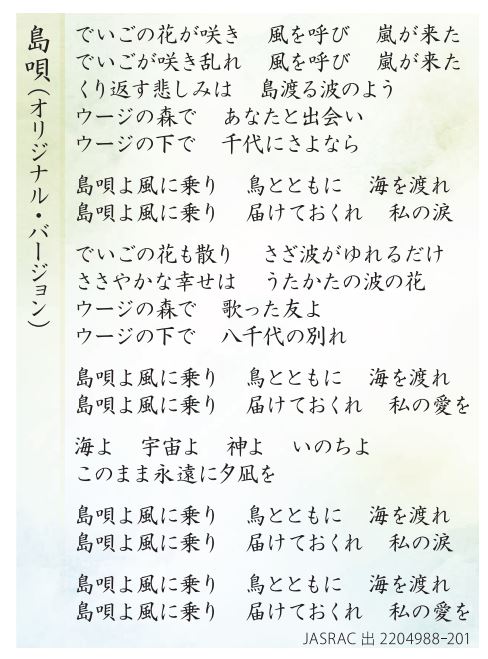 島唄（オリジナル・バージョン）
でいごの花が咲き　風を呼び　嵐が来た
でいごが咲き乱れ　風を呼び　嵐が来た
くり返す悲しみは　島渡る波のよう
ウージの森で　あなたと出会い
ウージの下で　千代にさよなら
島唄よ風に乗り　鳥とともに　海を渡れ
島唄よ風に乗り　届けておくれ　私の涙
でいごの花も散り　さざ波がゆれるだけ
ささやかな幸せは　うたかたの波の花
ウージの森で　歌った友よ
ウージの下で　八千代の別れ
島唄よ風に乗り　鳥とともに　海を渡れ
島唄よ風に乗り　届けておくれ　私の愛を
海よ　宇宙よ　神よ　いのちよ
このまま永遠に夕凪を
島唄よ風に乗り　鳥とともに　海を渡れ
島唄よ風に乗り　届けておくれ　私の涙
島唄よ風に乗り　鳥とともに　海を渡れ
島唄よ風に乗り　届けておくれ　私の愛を
JASRAC 出 2204988-201